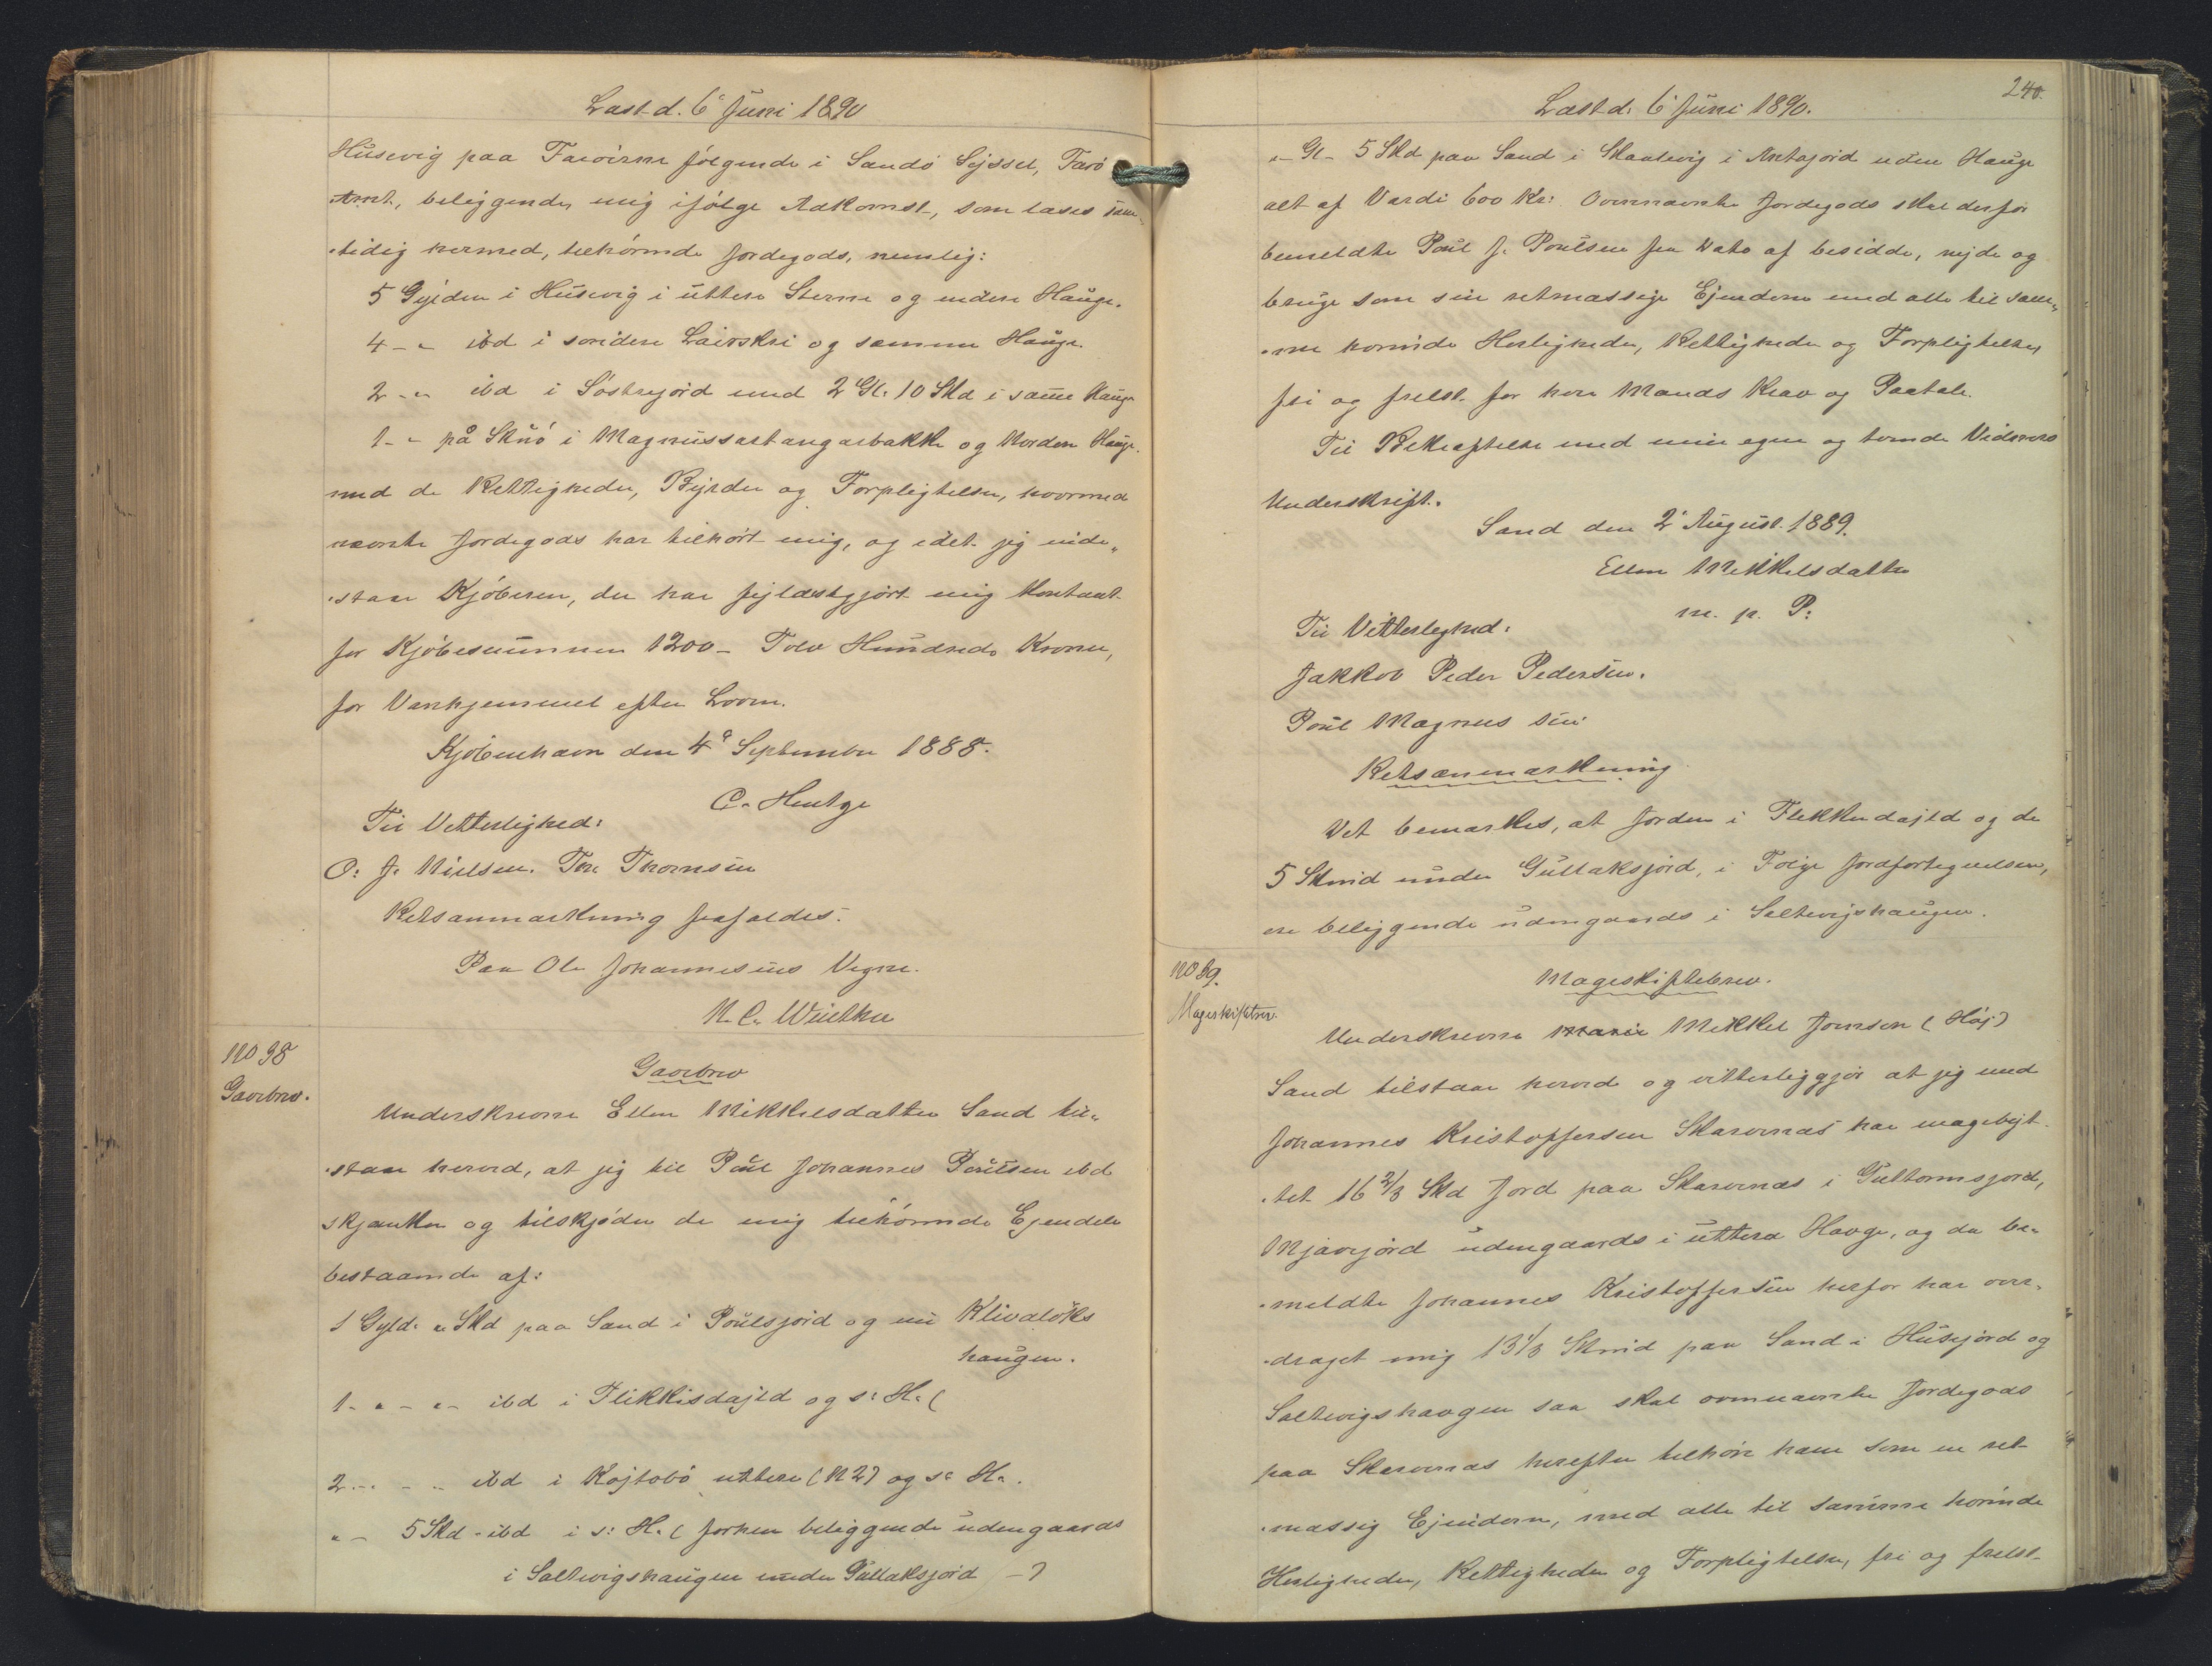 Læst d. 6' Juni 1890
Húsevig paa Færöerne følgende i Sandö Syssel, Færö
Amt, beliggende, mig ifølge Adkomst, som læses sam-
-tidig hermed, tilhörende Jordegods, nemlig:
5 Gylden i Húsevig i úttere Sterre og indere Haúge.
4 - " ibd i söndere Lairskri og samme Haúge.
2 - " ibd i Söstrejörd med 2 Gl. 10 Skd i samme Haúge
1 - " på Skúö i Magnússartangarbakke og Nordere Haúge.
med de Rettigheder, Byrder og Forpligtelser, hvormed
nævnte Jordegods har tilhört mig, og idet jeg inde„
„staar Kjöberen, der har fyldestgjört mig kontant
for Kjöbesummen 1200 - Tolv Hundrede Kroner,
for Vanhjemmel efter Loven.
Kjöbenhavn den 4' September 1888.
C. Hentze
Til Vitterlighed:
O. J. Nielsen. Th. Thomsen
Retsanmærkning frafaldes.
Paa Ole Johannesens Vegne.
N. C. Winther
No 38
Gavebrev.
Gavebrev
Underskrevne Ellen Mikkelsdatter Sand til„
„staar herved, at jeg til Poúl Johannes Poúlsen ibd
skjænker og tilskjøder de mig tilhörende Ejendele
bestaaende af:
1 Gyld. " Skd paa Sand i Poúlsjørd og úti Klivalöks
haúgen.
1 - " - " - ibd i Flikkisdajld og s: H. (
2 - " - " ibd i Kojtobö úttere (N2) og s: H.
" - 5 Skd - ibd i s: H. ( forhen beliggende údengaards
i Saltvigshaúgen únder Gúllaksjörd - )
240.
Læst d. 6' Júni 1890.
" - Gl - 5 Skd paa Sand i Skaalevig i úden Haúge
alt af Værdi 600 Kr: Ovennævnte Jordegods skal derfor
bemeldte Poúl J. Poúlsen fra Dato af besidde, nyde og
brúge som sin retmæssige Ejendom med alle til sam„
„me hörende Herligheder, Rettigheder og Forpligtelser
fri og frelst for hver Mands Krav og Paatale.
Til Bekræftelse med min egen og tvende Vidners
Underskrift.
Sand den 2' Aúgúst 1889.
Ellen Mikkelsdatter
m. p. P:
Til Vitterlighed:
Jakkob Peder Pedersen.
Poúl Magnus sen
Retsanmærkning
Det bemærkes, at Jorden i Flekkudajld og de
5 Skind únder Gúllaksjörd, i Følge Jordfortegnelsen,
ere beliggende údengaards i Saltvigshaúgen.
No 39.
Mageskiftebrev.
Mageskiftebrev.
Underskrevne Mikkel Joensen (Höj)
Sand tilstaar herved og vitterliggjör at jeg med
Johannes Kristoffersen Skarvenæs har magebyt-
-tet 16 2/3 Skd Jord paa Skarvenæs i Gúttormsjord,
Mjávejörd údengaards i úttera Havge, og da be„
„meldte Johannes Kristoffersen herfor har over„
„draget mig 13 1/3 Skind paa Sand i Húsejörd og
Saltvigshavgen saa skal ovennævnte Jordegods
paa Skarvenæs herefter tilhöre ham som en ret
„mæssig Ejendom, med alle til samme hörende
Herligheder, Rettigheder og Forpligtelser, fri og frelst